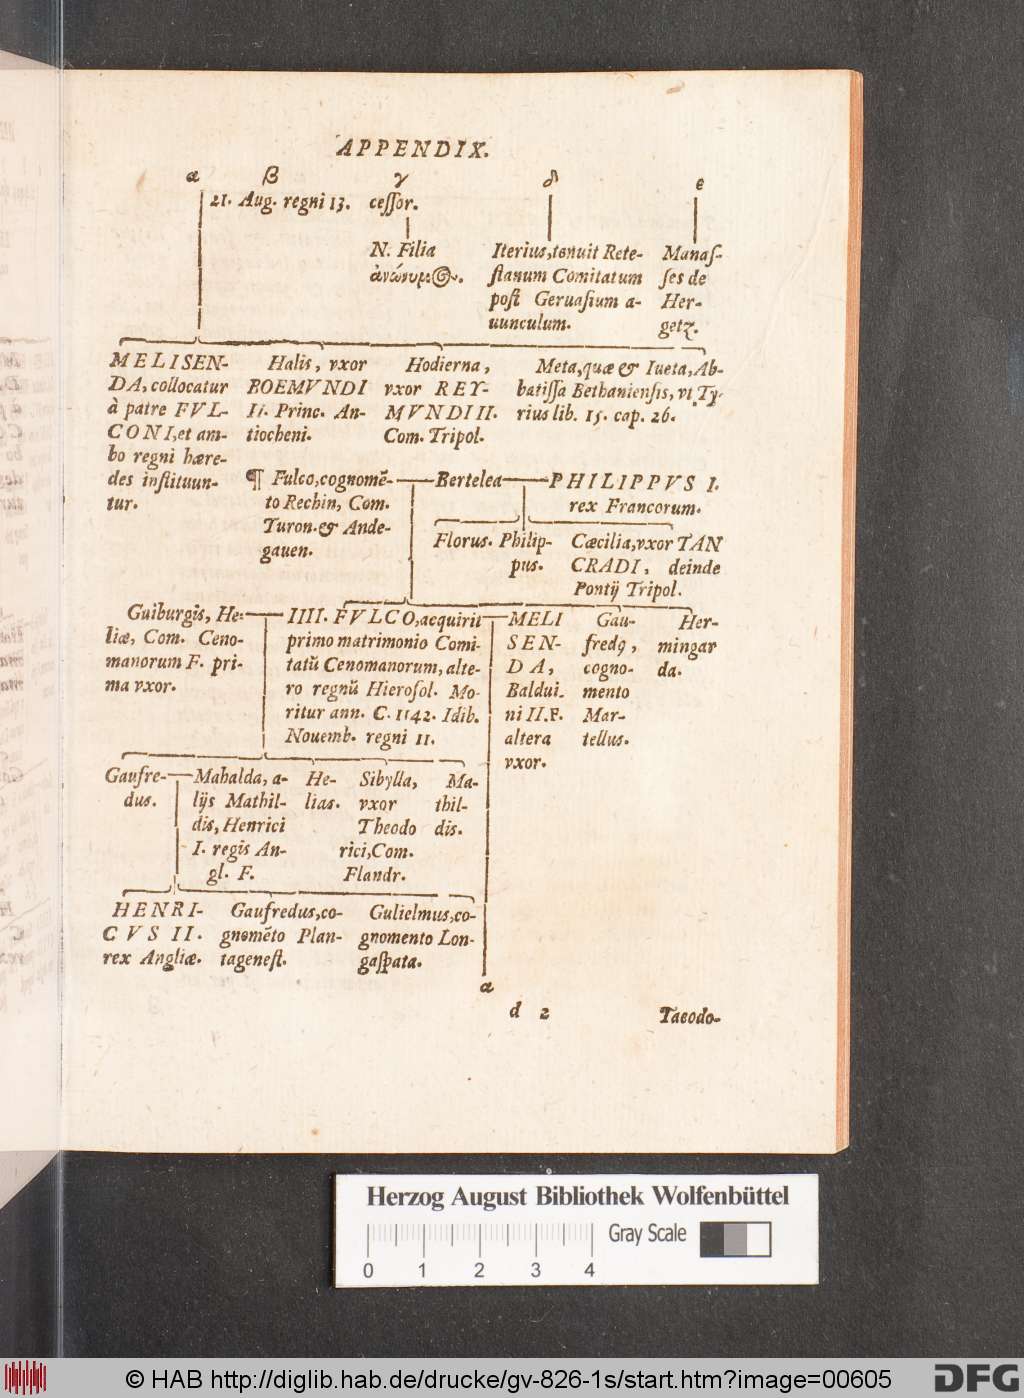 APPENDIX.
α β γ δ ε
21. Aug. regni 13. ceſſor.
N. Filia
Iterius, tenuit Rete-
ſtanum Comitatum
poſt Geruaſium a-
uunculum.
Manaſ-
ſes de
Her-
getz.
MELISEN-
DA, collocatur
à patre FVL-
CONI, et am-
bo regni hære-
des inſtituun-
tur.
Halis, vxor
BOEMVNDI
II. Princ. An-
tiocheni.
Hodierna,
vxor REY-
MVNDI II.
Com. Tripol.
Meta, quæ & Iueta, Ab-
batiſſa Bethanienſis, vt Ty-
rius lib. 15. cap. 26.
¶ Fulco, cognomē-
to Rechin, Com.
Turon. & Ande-
gauen.
Bertelea
PHILIPPVS I.
rex Francorum.
Florus.
Philip-
pus.
Cæcilia, vxor TAN
CRADI, deinde
Pontij Tripol.
Guiburgis, He-
liæ, Com. Ceno-
manorum F. pri-
ma vxor.
IIII. FVLCO, acquirit
primo matrimonio Comi-
tatū Cenomanorum, alte-
ro regnū Hieroſol. Mo-
ritur ann. C. 1142. Idib.
Nouemb. regni 11.
MELI
SEN-
DA,
Baldui-
ni II. F.
altera
vxor.
Gau-
fredꝰ,
cogno-
mento
Mar-
tellus.
Her-
mingar
da.
Gaufre-
dus.
Mahalda, a-
lijs Mathil-
dis, Henrici
I. regis An-
gl. F.
He-
lias.
Sibylla,
vxor
Theodo
rici, Com.
Flandr.
Ma-
thil-
dis.
HENRI-
CVS II.
rex Angliæ.
Gaufredus, co-
gnomēto Plan-
tageneſt.
Gulielmus, co-
gnomento Lon-
gaſpata.
α
d 2
Taeodo-
Herzog August Bibliothek Wolfenbüttel
Gray Scale
0 1 2 3 4
© HAB http://diglib.hab.de/drucke/gv-826-1s/start.htm?image=00605
DFG